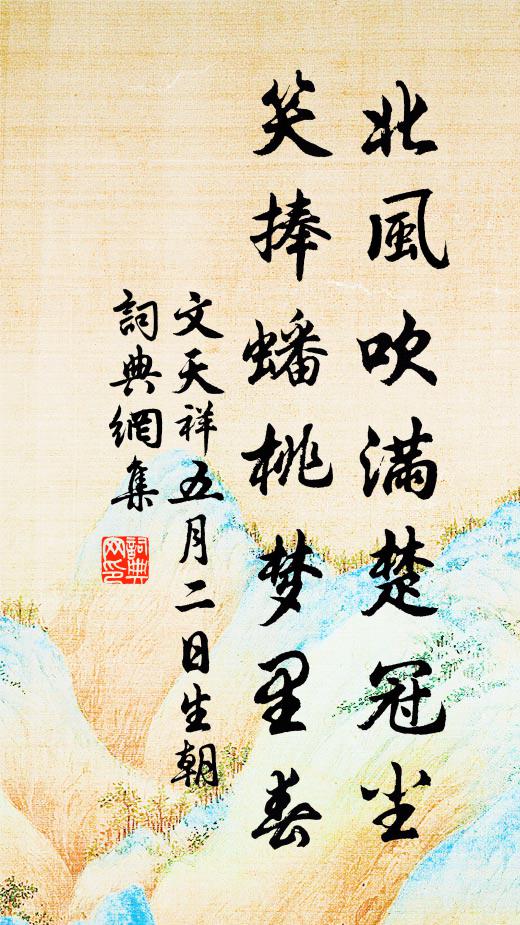 北風吹满楚冠尘
笑捧蟠桃梦里春
文天祥五月二日生朝
詞典網集
詞典
网印